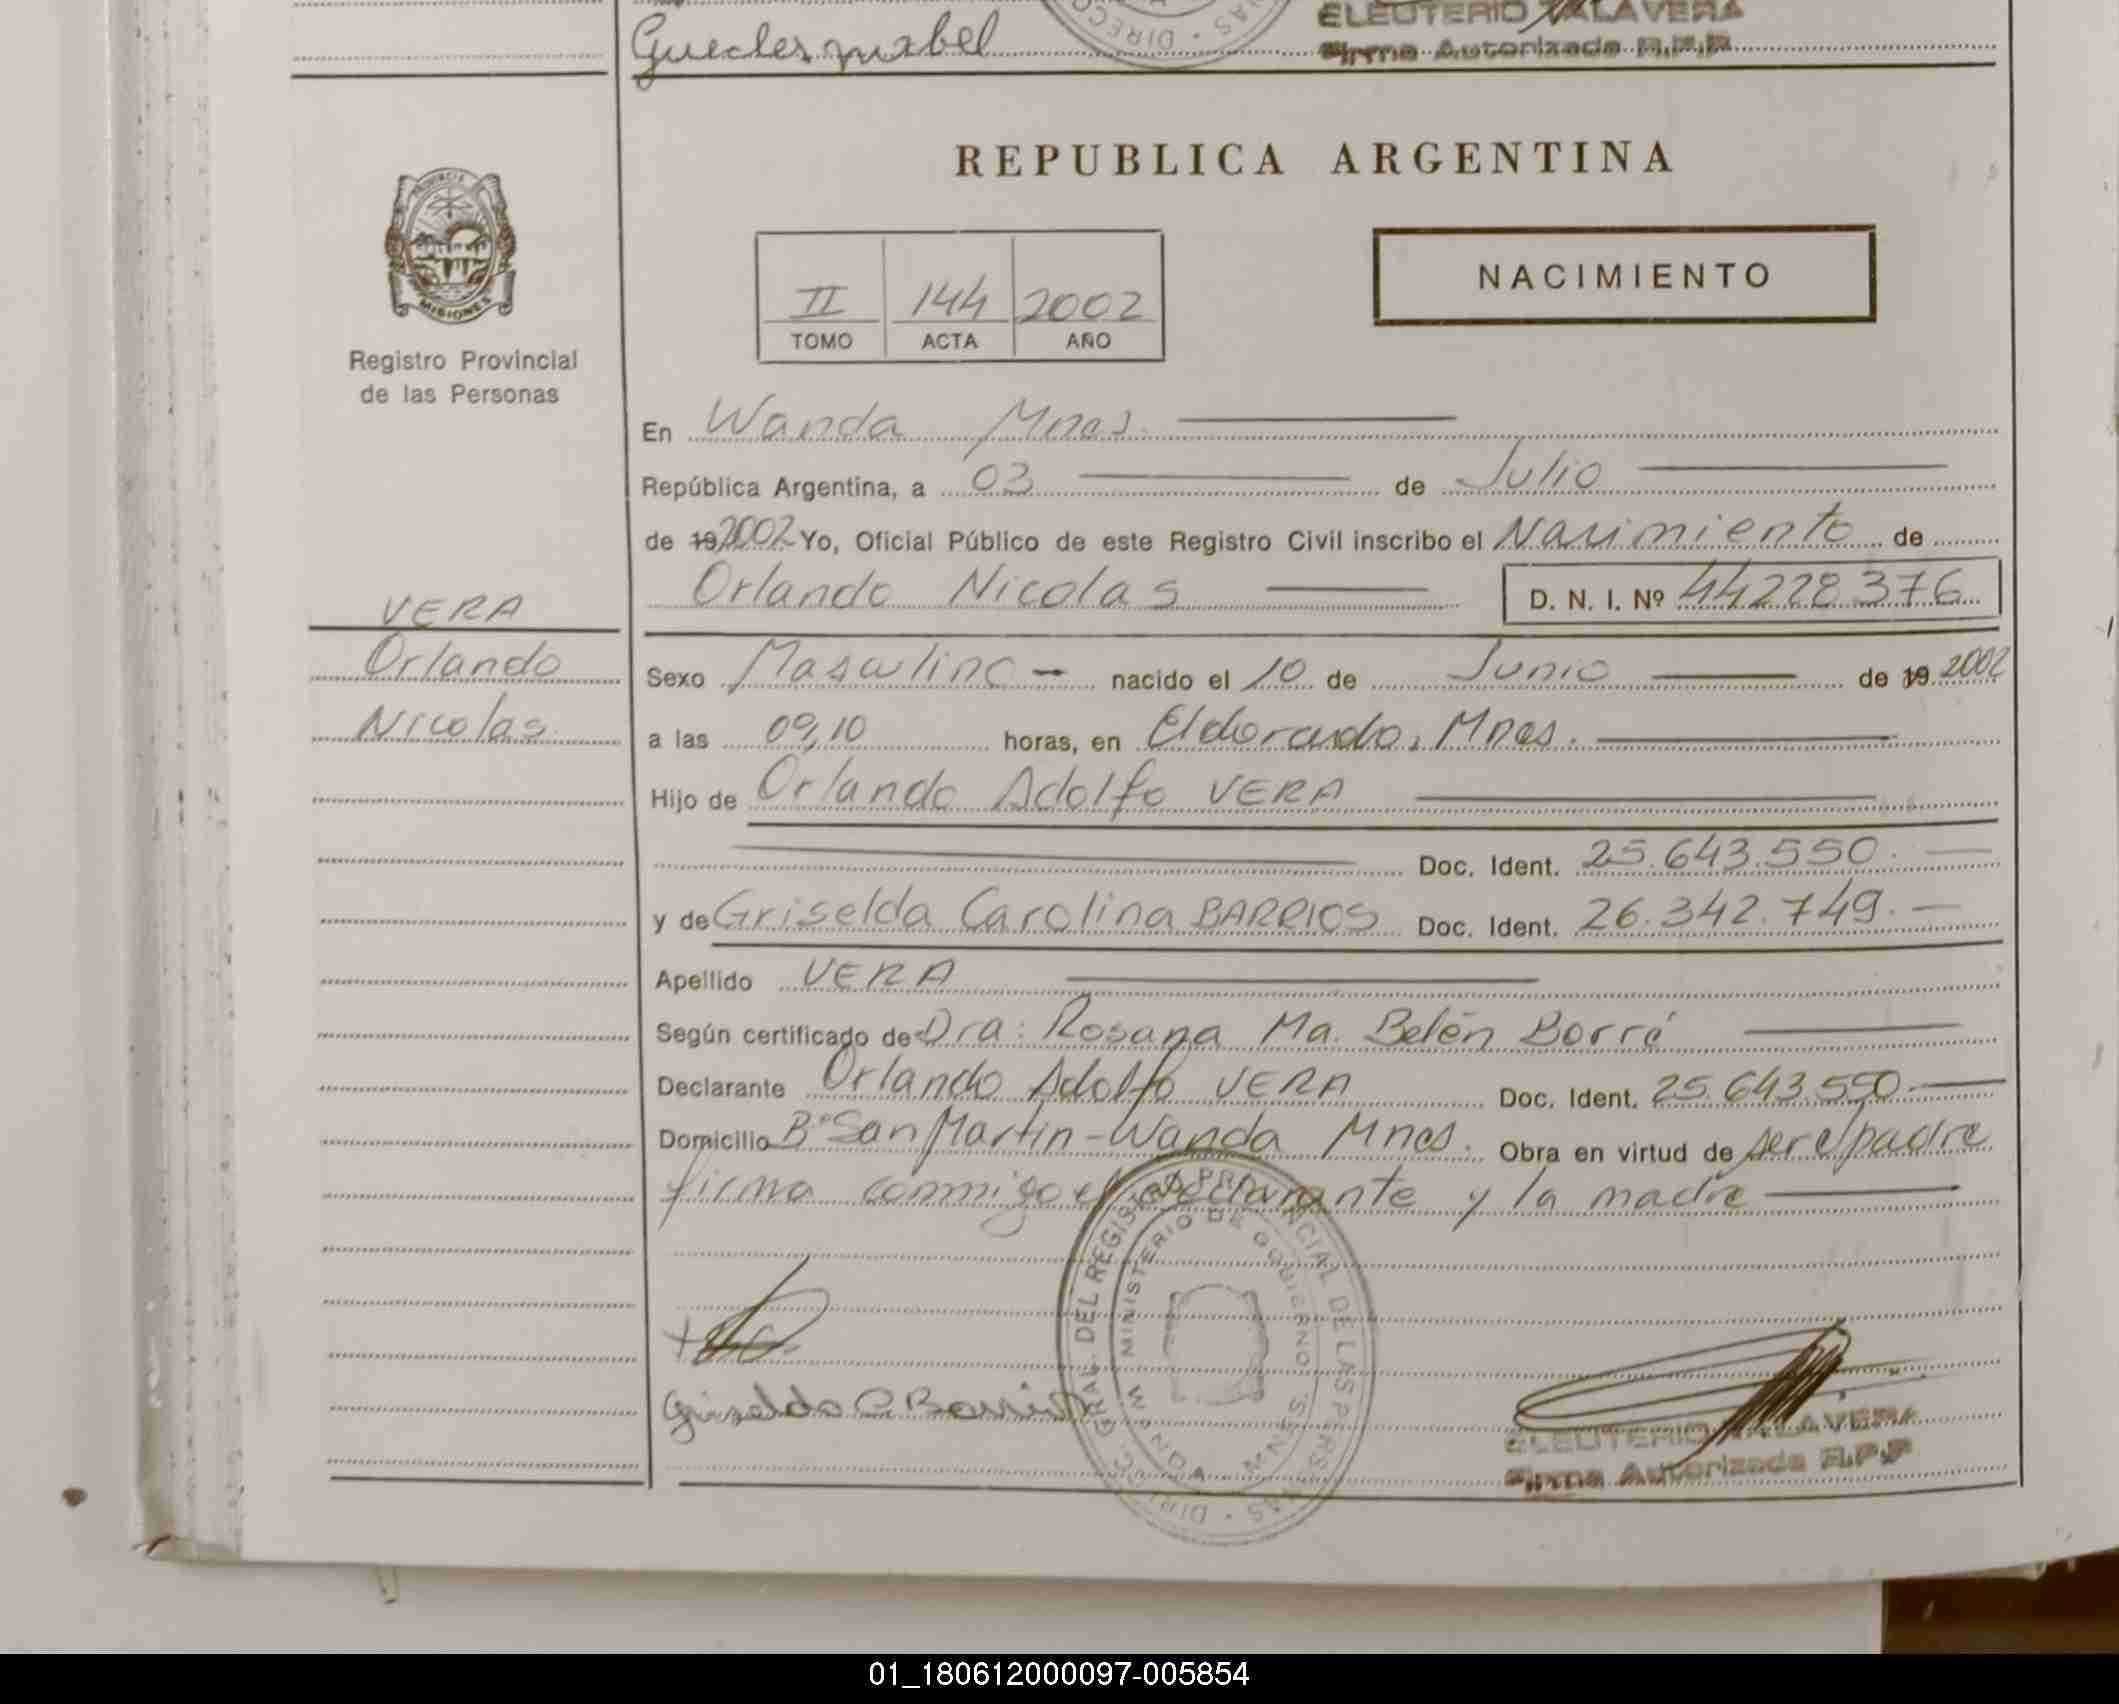 Guedes mabel
ELEUTERIO TALAVERA
Firma Autorizada R.P.P
REPUBLICA ARGENTINA
PROVINCIA DE
MISIONES
Registro Provincial
de las Personas
II 144 2002
TOMO ACTA AÑO
NACIMIENTO
En Wanda Mnes.
República Argentina, a 03 de Julio
de 19 2002 Yo, Oficial Público de este Registro Civil inscribo el Nacimiento de
Orlando Nicolas D. N. I. Nº 44228376
VERA
Orlando
Nicolas
Sexo Masculino nacido el 10 de Junio de 19 2002
a las 09,10 horas, en Eldorado, Mnes.
Hijo de Orlando Adolfo VERA
Doc. Ident. 25.643.550.
y de Griselda Carolina BARRIOS Doc. Ident. 26.342.749.
Apellido VERA
Según certificado de Dra: Rosana Ma. Belén Borré
Declarante Orlando Adolfo VERA Doc. Ident. 25.643.550
Domicilio Bº San Martin - Wanda Mnes. Obra en virtud de ser el padre
firma conmigo el declarante y la madre
DIREC. GRAL. DEL REGISTRO PROVINCIAL DE LAS PERSONAS
MINISTERIO DE GOBIERNO
WANDA - MNES
Griselda C Barrios
ELEUTERIO TALAVERA
Firma Autorizada R.P.P
01_180612000097-005854